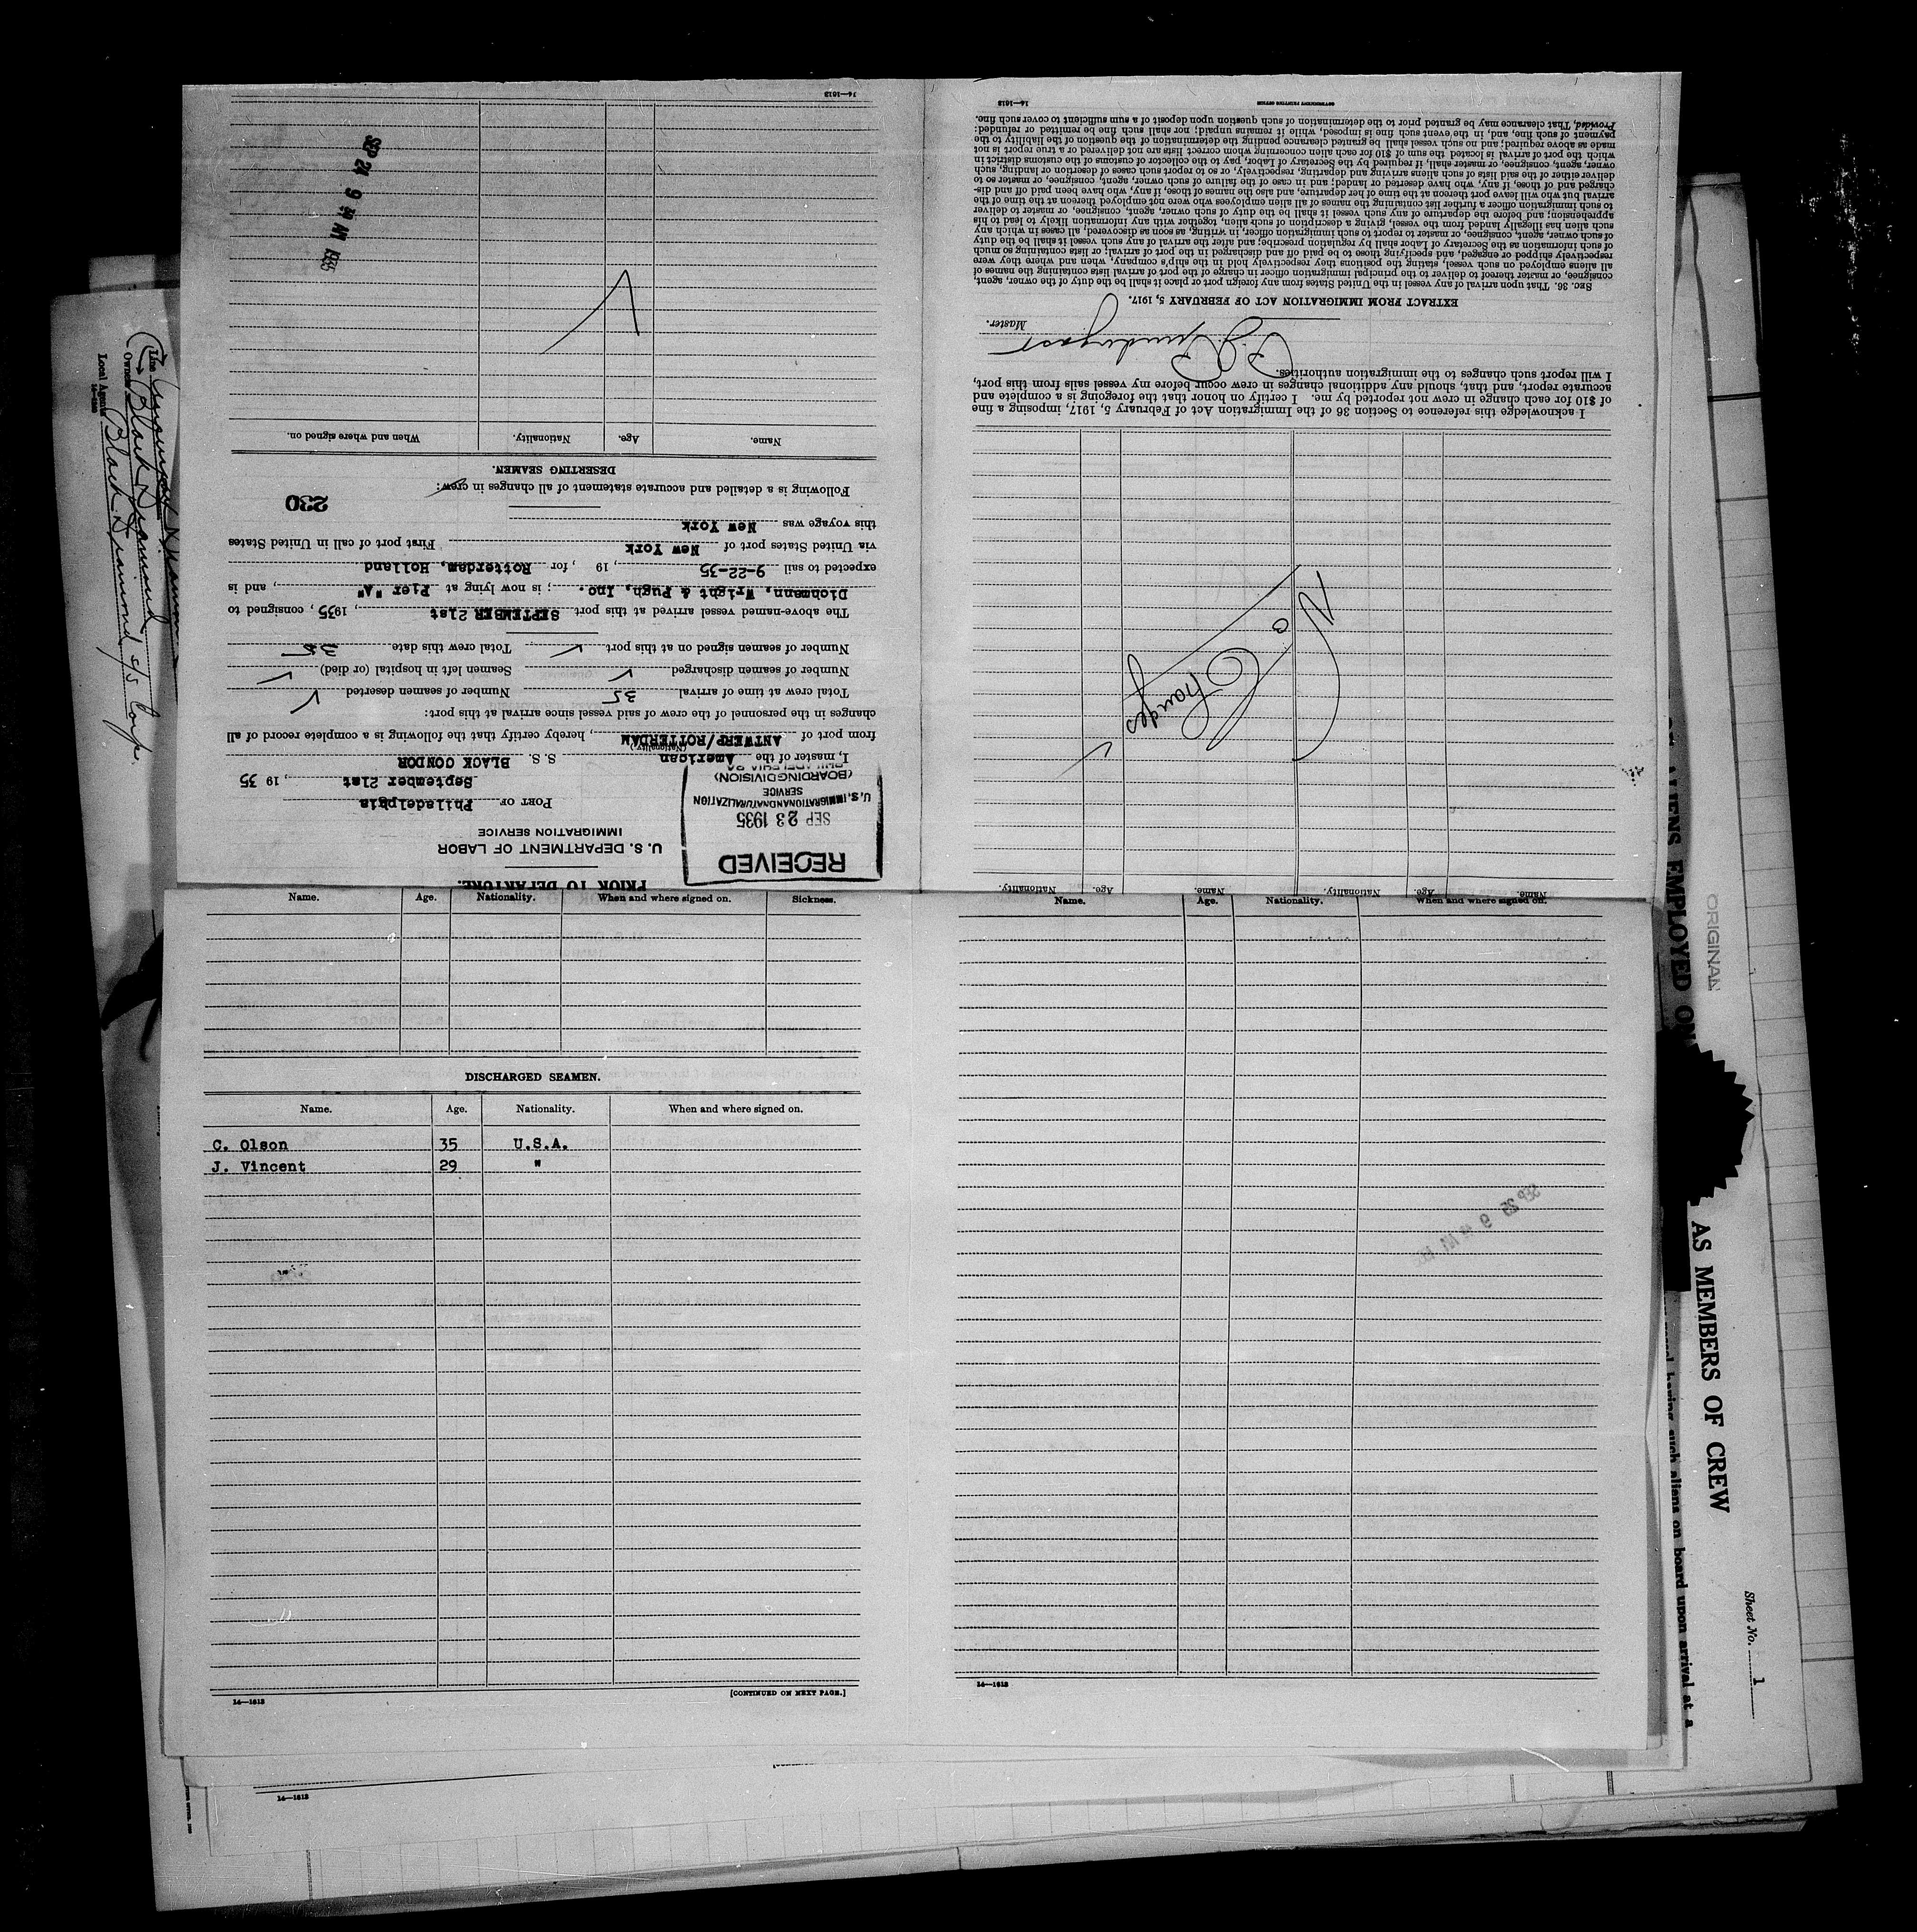 PRIOR TO DEPARTURE.
U. S. DEPARTMENT OF LABOR
IMMIGRATION SERVICE
RECEIVED
SEP 23 1935
U.S. IMMIGRATION AND NATURALIZATION
SERVICE
(BOARDING DIVISION)
PORT OF Philadelphia
September 21st, 19 35
I, master of the American S. S. BLACK CONDOR
(Nationality)
from port of ANTWERP/ROTTERDAM, hereby certify that the following is a complete record of all
changes in the personnel of the crew of said vessel since arrival at this port:
Total crew at time of arrival 35 Number of seamen deserted
Number of seamen discharged Seamen left in hospital (or died)
Number of seamen signed on at this port Total crew this date 35
The above-named vessel arrived at this port SEPTEMBER 21st, 1935, consigned to
Dichmann, Wright & Pugh, Inc. ; is now lying at Pier "A", and is
expected to sail 9-22-35, 19 , for Rotterdam, Holland
via United States port of New York First port of call in United States
this voyage was New York
230
Following is a detailed and accurate statement of all changes in crew:
DESERTING SEAMEN.
Name. Age. Nationality. When and where signed on.
SEP 24 9 AM 1935
14—1613
Name. Age. Nationality. Name. Age. Nationality.
No Changes
I acknowledge this reference to Section 36 of the Immigration Act of February 5, 1917, imposing a fine
of $10 for each change in crew not reported by me. I certify on honor that the foregoing is a complete and
accurate report, and that, should any additional changes in crew occur before my vessel sails from this port,
I will report such changes to the immigration authorities.
Master.
EXTRACT FROM IMMIGRATION ACT OF FEBRUARY 5, 1917.
SEC. 36. That upon arrival of any vessel in the United States from any foreign port or place it shall be the duty of the owner, agent,
consignee, or master thereof to deliver to the principal immigration officer in charge of the port of arrival lists containing the names of
all aliens employed on such vessel, stating the positions they respectively hold in the ship's company, when and where they were
respectively shipped or engaged, and specifying those to be paid off and discharged in the port of arrival; or lists containing so much
of such information as the Secretary of Labor shall by regulation prescribe; and after the arrival of any such vessel it shall be the duty
of such owner, agent, consignee, or master to report to such immigration officer, in writing, as soon as discovered, all cases in which any
such alien has illegally landed from the vessel, giving a description of such alien, together with any information likely to lead to his
apprehension; and before the departure of any such vessel it shall be the duty of such owner, agent, consignee, or master to deliver
to such immigration officer a further list containing the names of all alien employees who were not employed thereon at the time of the
arrival but who will leave port thereon at the time of her departure, and also the names of those, if any, who have been paid off and dis-
charged and of those, if any, who have deserted or landed; and in case of the failure of such owner, agent, consignee, or master so to
deliver either of the said lists of such aliens arriving and departing, respectively, or so to report such cases of desertion or landing, such
owner, agent, consignee, or master shall, if required by the Secretary of Labor, pay to the collector of customs of the customs district in
which the port of arrival is located the sum of $10 for each alien concerning whom correct lists are not delivered or a true report is not
made as above required; and no such vessel shall be granted clearance pending the determination of the question of the liability to the
payment of such fine, and, in the event such fine is imposed, while it remains unpaid; nor shall such fine be remitted or refunded:
Provided, That clearance may be granted prior to the determination of such question upon deposit of a sum sufficient to cover such fine.
14—1613 GOVERNMENT PRINTING OFFICE
Name. Age. Nationality. When and where signed on. Sickness.
DISCHARGED SEAMEN.
Name. Age. Nationality. When and where signed on.
C. Olson 35 U.S.A.
J. Vincent 29 "
14—1613 [CONTINUED ON NEXT PAGE.]
Name. Age. Nationality. When and where signed on.
14—1613
14—1613
Line
Owners Black Diamond
Local Agents Black Diamond S/S Corp.
ORIGINAL
ALIENS EMPLOYED ON
AS MEMBERS OF CREW
having such aliens on board upon arrival at a
Sheet No. 1